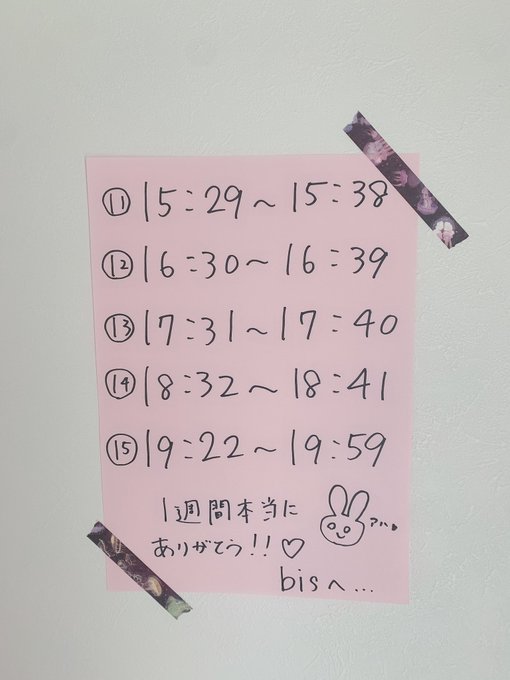 ⑪ 15:29〜15:38
⑫ 16:30〜16:39
⑬ 17:31〜17:40
⑭ 18:32〜18:41
⑮ 19:22〜19:59
1週間本当に
ありがてう!!♡
アハ
bisへ...